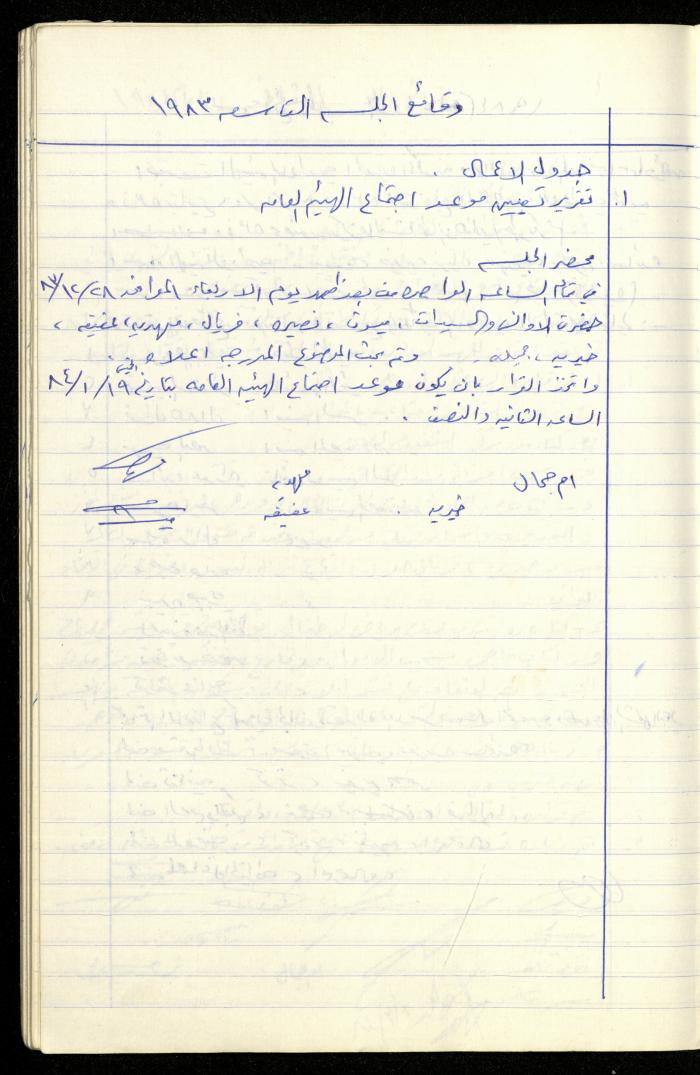 وقائع الجلسه التاسعه ١٩٨٣
جدول الاعمال .
١. تقرير تعيين موعد اجتماع الهيئه العامه
محضر الجلسه
في تمام الساعه الواحده من بعد ظهر يوم الاربعاء الموافق ٨٣/١٢/٢٨
حضرت الاوانس والسيدات ، ميسون ، نصيره ، فريال ، مهديه ، عفيفه ،
خيريه ، جميله . وتم بحث الموضوع المدرجه اعلاه .
واتخذ القرار بان يكون موعد اجتماع الهيئه العامه بتاريخ ٨٤/١/١٩
الساعه الثانيه والنصف .
ام جمال مهديه
خيريه . عفيفه